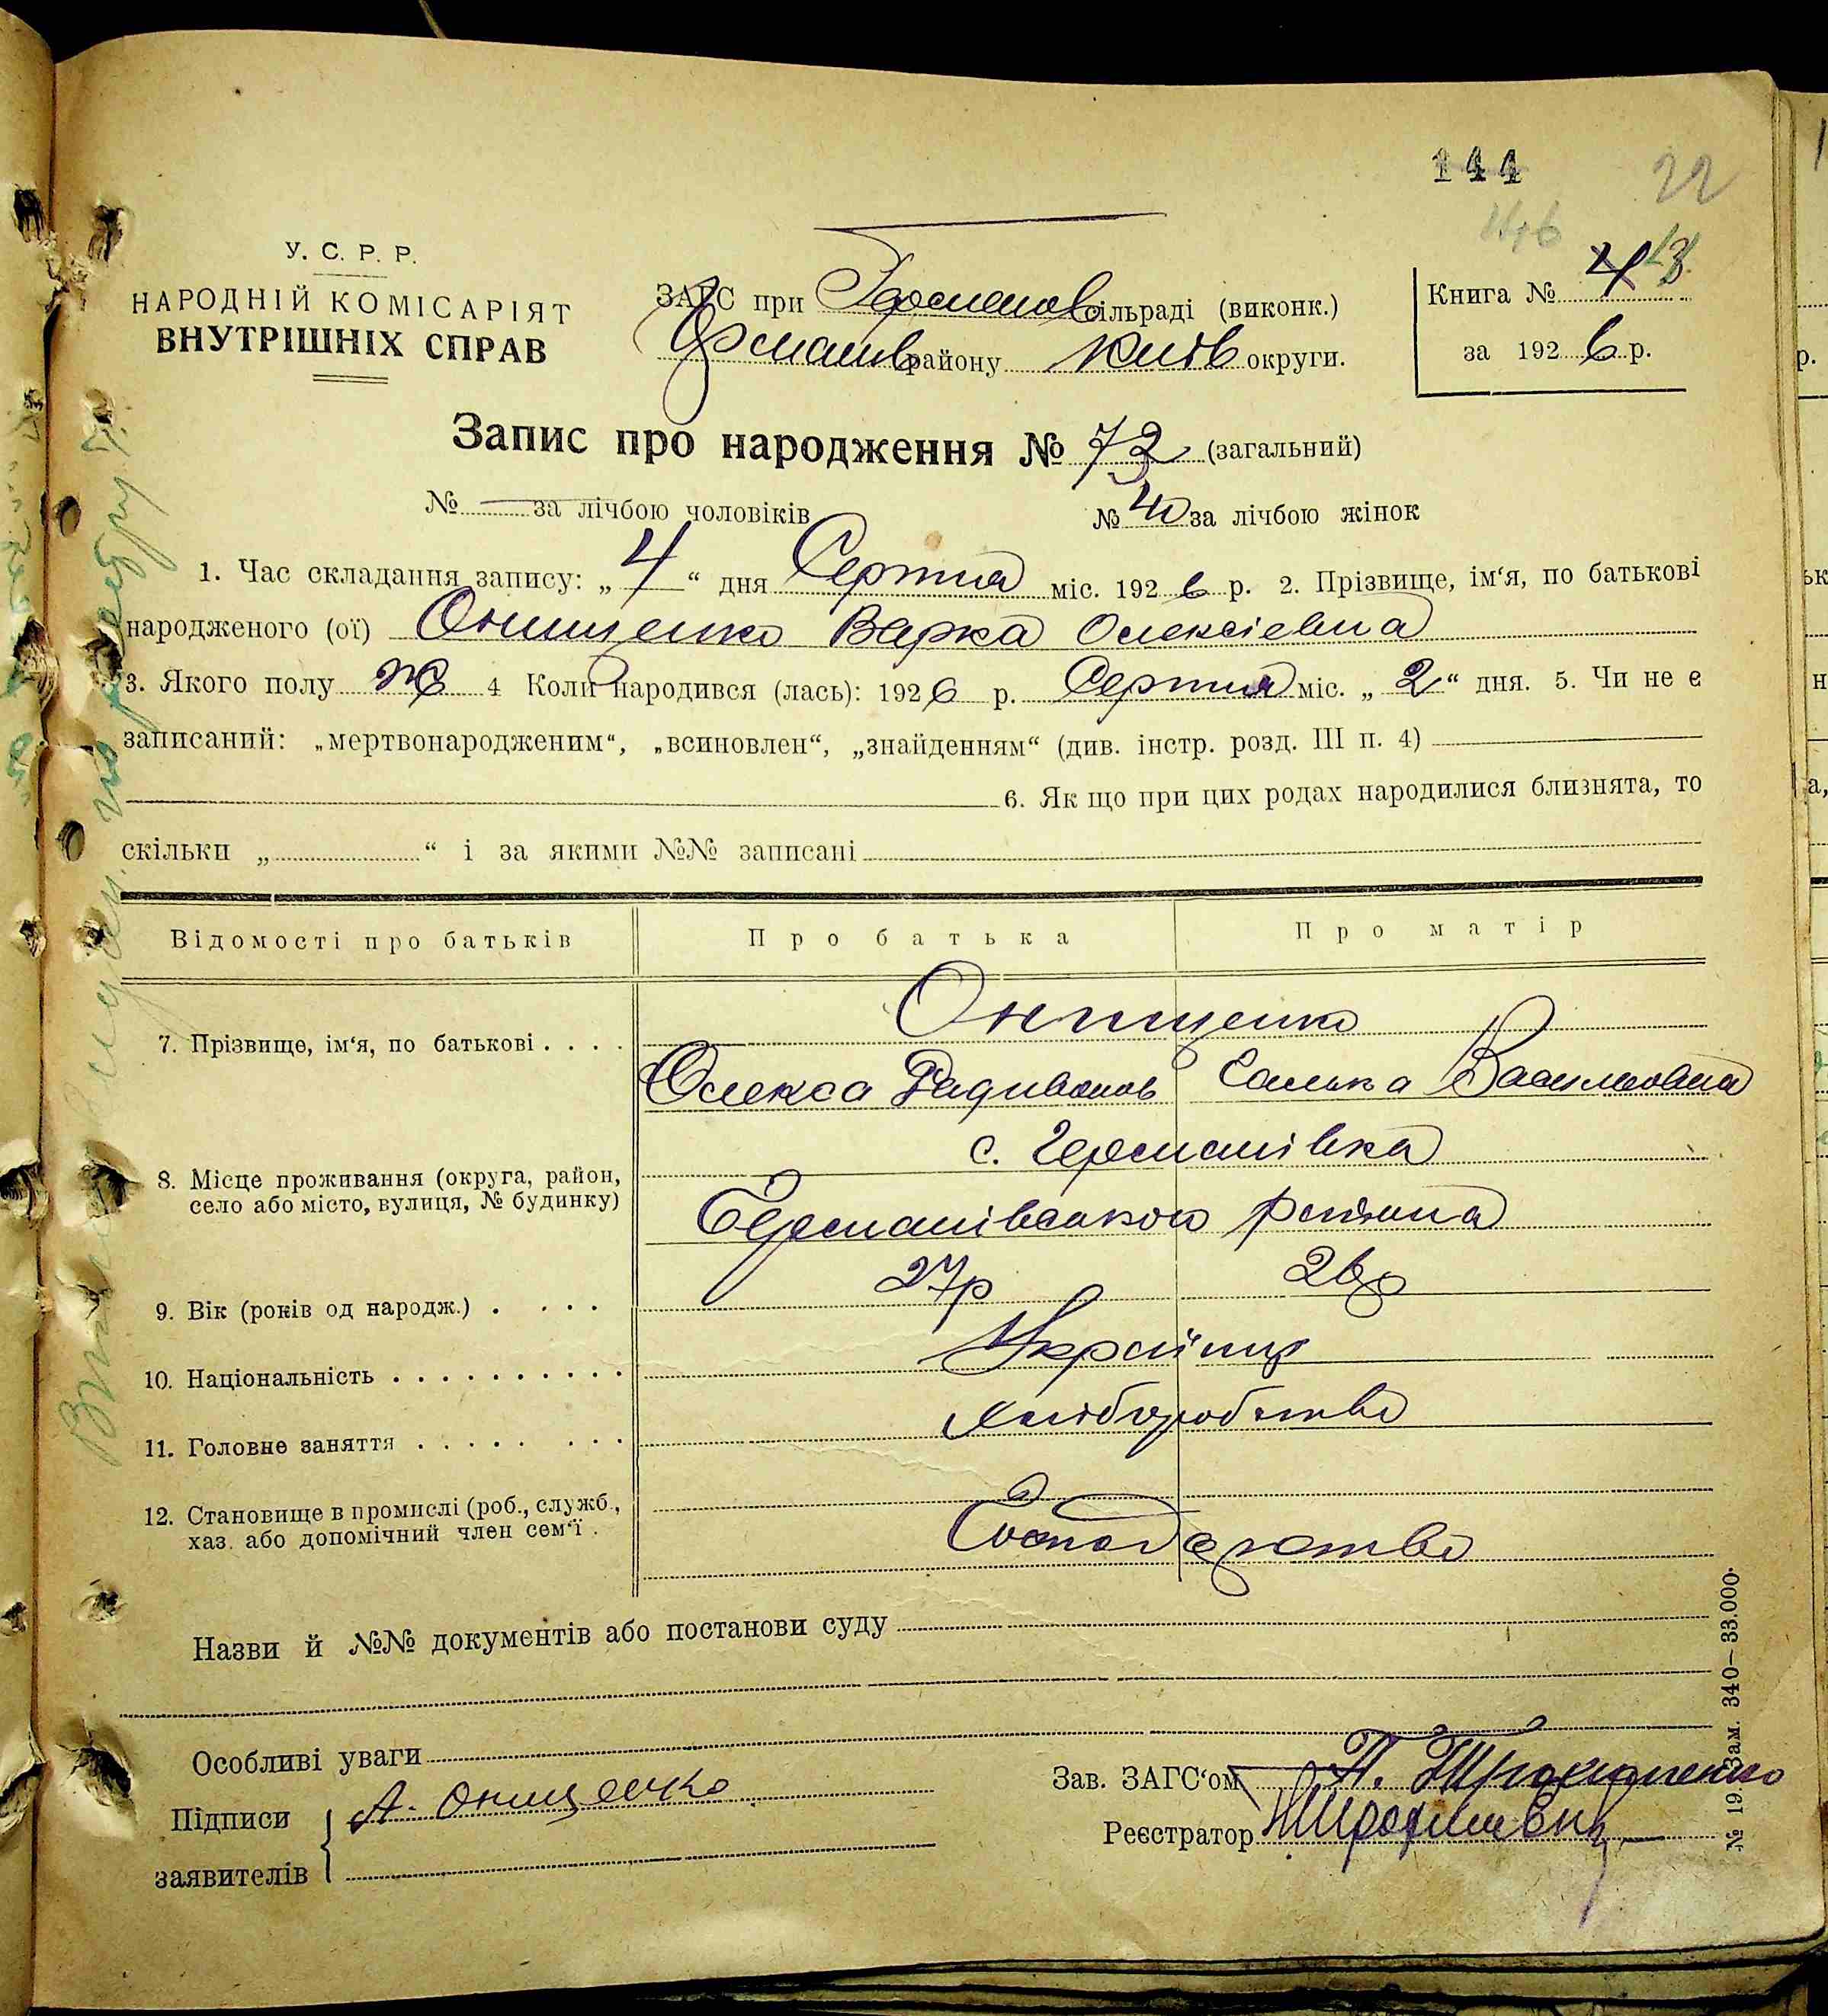 144
22
У. С. Р. Р.
НАРОДНІЙ КОМІСАРІЯТ
ВНУТРІШНІХ СПРАВ
ЗАГС при Германов сільраді (виконк.)
Германів району Київ округи.
Книга №
за 1926 р.
Запис про народження № 72 (загальний)
№ — за лічбою чоловіків № 40 за лічбою жінок
1. Час складання запису: „4“ дня Серпня міс. 1926 р. 2. Прізвище, ім‘я, по батькові
народженого (ої) Онищенко Варка Олексіевна
3. Якого полу ж 4 Коли народився (лась): 1926 р. Серпня міс. „2“ дня. 5. Чи не є
записаний: „мертвонародженим“, „всиновлен“, „знайденням“ (див. інстр. розд. III п. 4)
6. Як що при цих родах народилися близнята, то
скільки „ “ і за якими №№ записані
Відомості про батьків Про батька Про матір
7. Прізвище, ім‘я, по батькові . . . .
Онищенко
Олекса Радивонов Солька Васильовна
8. Місце проживання (округа, район,
село або місто, вулиця, № будинку)
с. Германівка
Германівського району
9. Вік (років од народж.) . . . . 27р 26р
10. Національність . . . . . . . . . . Українці
11. Головне заняття . . . . . . . . Хліборобство
12. Становище в промислі (роб., служб.,
хаз. або допомічний член сем‘ї .
Господарство
Назви й №№ документів або постанови суду
Особливі уваги
Підписи
заявителів
А. Онищенко
Зав. ЗАГС‘ом
Реєстратор
№ 19 Зам. 340—33.000.